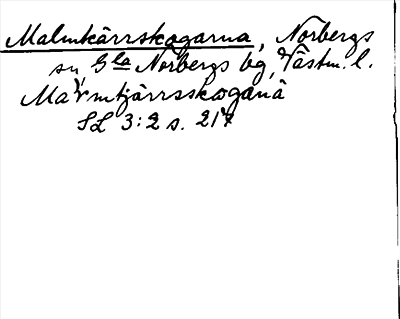 Malmkärrskogarna, Norbergs
sn, Gla Norbergs bg, Västm. l.
Marmtjärrsskoganä
SL 3:2 s. 217